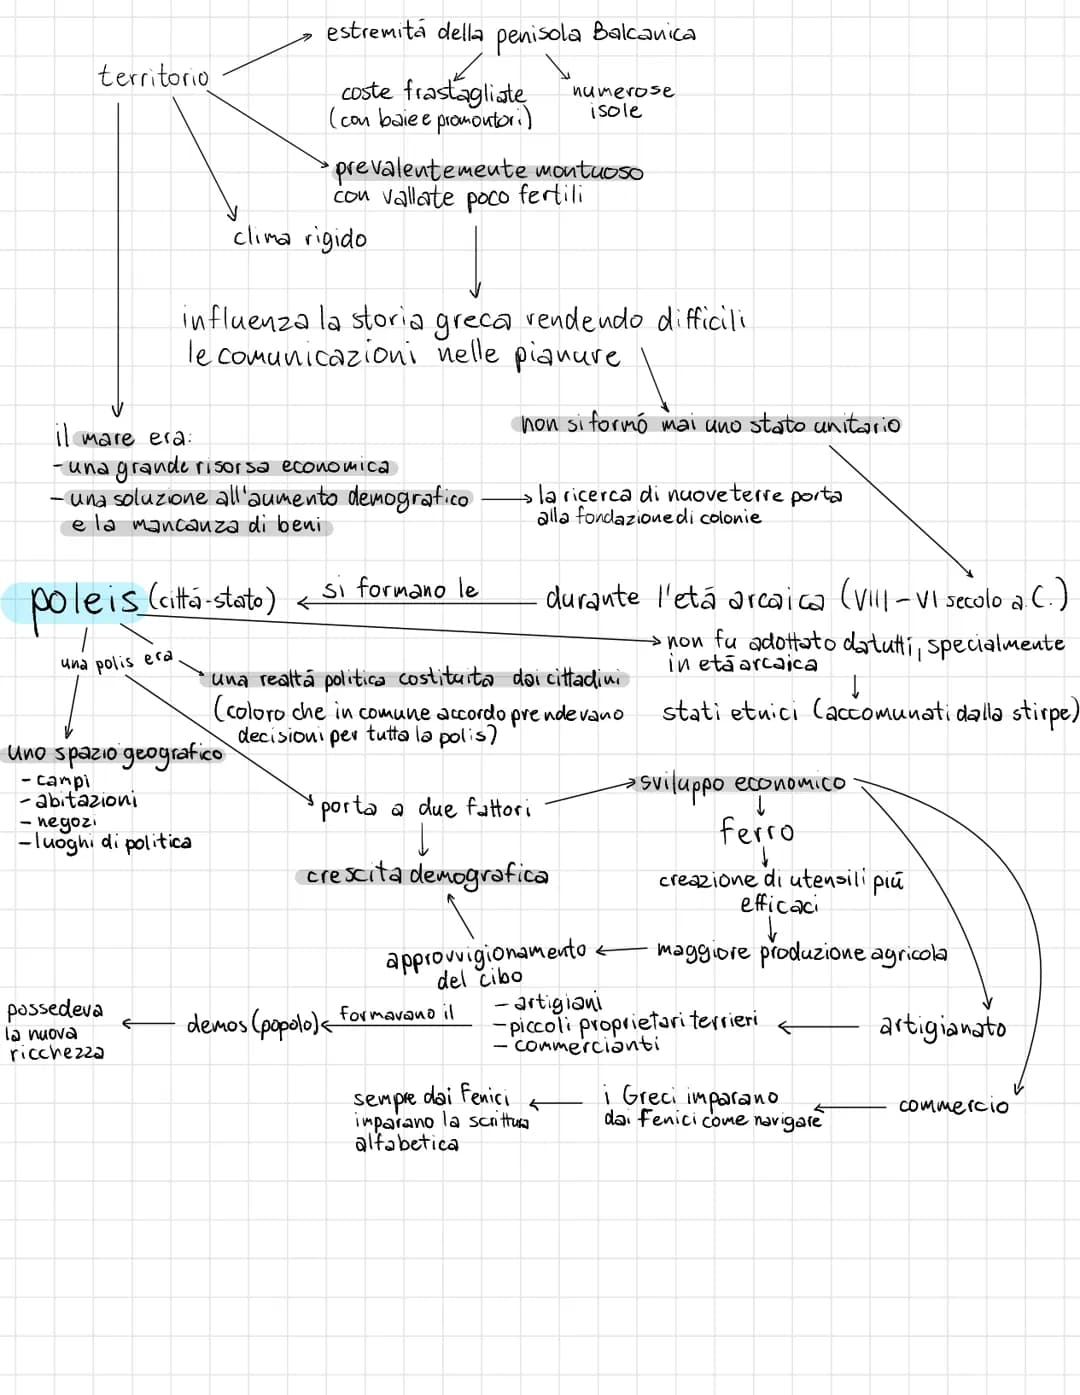 estremitá della penisola Balcanica
territorio
coste frastagliate
(con baie e promontori)
numerose
isole
prevalentemente montuoso
con vallate poco fertili
clima rigido
influenza la storia greca rendendo difficili
le comunicazioni nelle pianure
non si formó mai uno stato unitario
il mare era:
- una grande risorsa economica
- una soluzione all'aumento demografico
e la mancanza di beni
la ricerca di nuove terre porta
alla fondazione di colonie
poleis (cittá-stato)
si formano le
durante l'etá arcaica (VIII-VI secolo a.C.)
non fu adottato da tutti, specialmente
in etá arcaica
stati etnici (accomunati dalla stirpe)
una polis era
una realtá politica costituita dai cittadini
(coloro che in comune accordo prendevano
decisioni per tutta la polis)
uno spazio geografico
- campi
- abitazioni
- negozi
- luoghi di politica
porta a due fattori
sviluppo economico
ferro
crescita demografica
creazione di utensili piú
efficaci
maggiore produzione agricola
approvvigionamento
del cibo
artigianato
- artigiani
- piccoli proprietari terrieri
- commercianti
formavano il
demos (popolo)
possedeva
la nuova
ricchezza
commercio
i Greci imparano
dai Fenici come navigare
sempre dai Fenici
imparano la scrittura
alfabetica